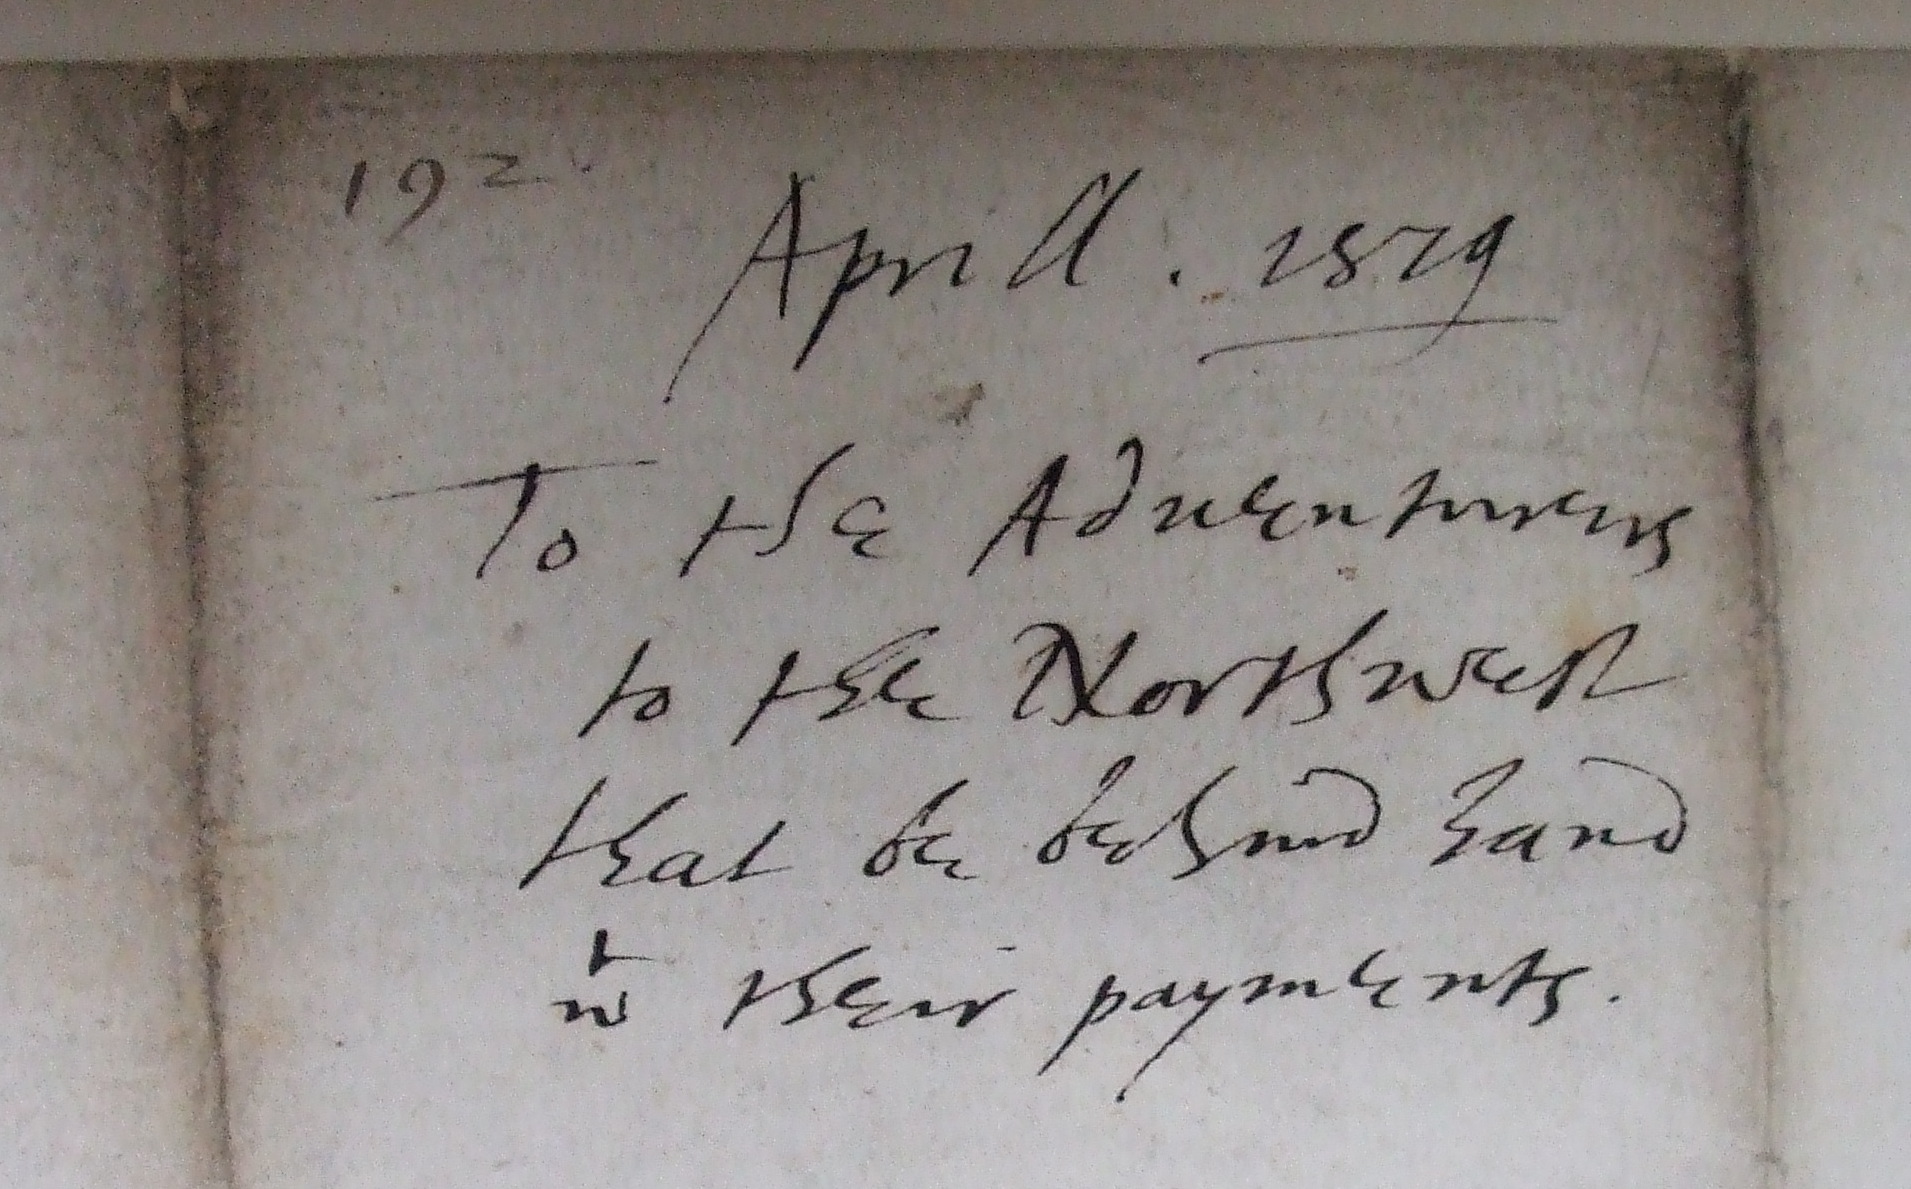 192.
Aprill. 1579
To the Aduenturers
to the Northwest
that be behind hand
wt their payments.